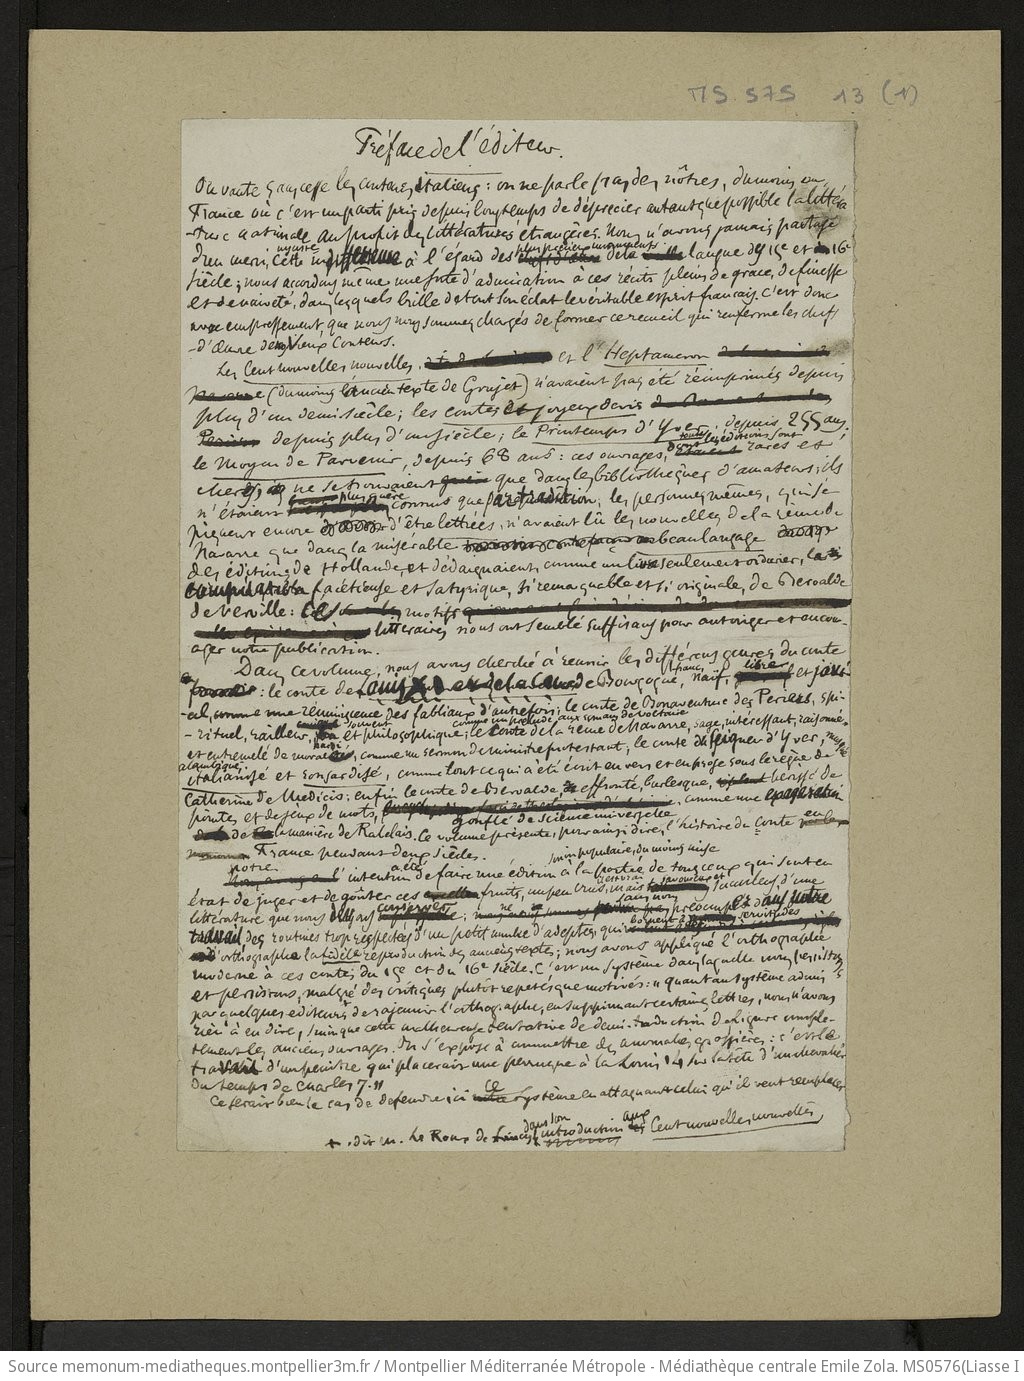 MS 575 13 (1)
Préface de l'éditeur.
On vante sans cesse les conteurs italiens : on ne parle pas des nôtres, du moins en
France où c'est un parti pris depuis longtemps de déprécier autant que possible la littéra
-ture nationale au profit des littératures étrangères. Nous n'avons jamais partagé
d'un merci, cette injuste à l'égard des plus précieux monuments de la langue du 15e et 16e
siècle ; nous accordons même une sorte d'admiration à ces récits pleins de grace, de finesse
et de naiveté, dans lesquels brille de tout son éclat le véritable esprit français. C'est donc
avec empressement que nous nous sommes chargés de former ce recueil qui renferme les chefs
-d'œuvre de nos vieux conteurs.
Les Cent nouvelles nouvelles, et l'Heptameron
(du moins l'ancien texte de Grujet) n'avaient pas été réimprimés depuis
plus d'un demi siècle ; les contes et joyeux devis
depuis plus d'un siècle ; le Printemps d'Yver, depuis 255 ans.
le Moyen de Parvenir, depuis 68 ans : ces ouvrages, dont toutes les éditions sont rares et
chères, ne se trouvaient que dans les bibliothèques d'amateurs ; ils
n'étaient plus guère connus que par tradition ; les personnes mêmes, qui se
piquent encore d'être lettrées, n'avaient lû les nouvelles de la reine de
Navarre que dans la misérable beau langage
des éditions de Hollande, et dédaignaient, comme un livre seulement ordurier, la
compilation facétieuse et satyrique, si remarquable et si originale, de Beroalde
de Verville : motifs
littéraires nous ont semblé suffisans pour autoriser et encou-
ager notre publication.
Dans ce volume, nous avons cherché à reunir les différens genres du conte
français : le conte de la cour de Bourgogne, naïf, libre et jovi-
-al, comme une réminiscence des fabliaux d'autrefois ; le conte de Bonaventure des Periers, spi-
-rituel, railleur, souvent et philosophique, comme un prélude aux romans de Voltaire ; le conte de la reine de Navarre, sage, intéressant, raisonné
et entremêlé de morale, comme un sermon de ministre protestant ; le conte du seigneur d'Yver,
italianisé et ronsardisé, comme tout ce qui a été écrit en vers et en prose sous le règne de
Catherine de Medicis ; enfin le conte de Beroalde, effronté, burlesque, hérissé de
pointes et de jeux de mots, gonflé de science universelle, comme une exagération
de la manière de Rabelais. Ce volume présente, pour ainsi dire, l'histoire du conte en
France pendant deux siècles.
notre l'intention a été de faire une édition à la portée de tous ceux qui sont en
état de juger et de goûter ces fruits, un peu verts, mais savoureux et d'une
littérature que nous conservée ;
travail des routines trop respectées d'un petit nombre d'adeptes, qui servitudes
d'orthographe la fidèle reproduction des anciens textes ; nous avons appliqué l'orthographe
moderne à ces contes du 15e et du 16e siècle. C'est un système dans lequel nous persistons
et persisterons, malgré des critiques plutôt repetées que motivées : "quant au système admis
par quelques éditeurs de rajeunir l'orthographe, en supprimant certaines lettres, nous n'avons
rien à en dire, sinon que cette malheureuse tentative de demi-traduction défigure comple-
tement les anciens ouvrages. On s'expose à commettre des anomalies grossières : c'est le
travail d'un peintre qui placerait une perruque à la Louis 14 sur la tête d'un chevalier
du temps de Charles 7."
Ce serait bien le cas de défendre ici ce système en attaquant celui qu'il veut remplacer
+ . dit M. Le Roux de Lincy, dans son introduction aux Cent nouvelles nouvelles,
Source memonum-mediatheques.montpellier3m.fr / Montpellier Méditerranée Métropole - Médiathèque centrale Emile Zola. MS0576(Liasse I